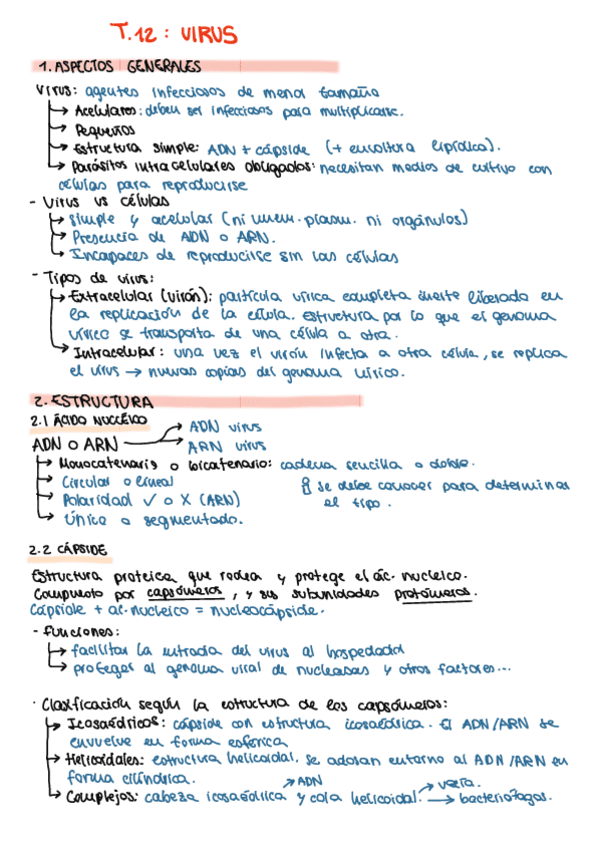 T.12: VIRUS
1. ASPECTOS GENERALES
Virus: agentes infecciosos de menor tamaño
→ Acelulares: deben ser infecciosos para multiplicarse.
→ Pequeños
→ Estructura simple: ADN + cápside (+ envoltura lipídica).
→ Parásitos intracelulares obligados: necesitan medios de cultivo con
células para reproducirse
- Virus vs células
→ Simple y acelular (ni mem. plasm. ni orgánulos)
→ Presencia de ADN o ARN.
→ Incapaces de reproducirse sin las células
- Tipos de virus:
→ Extracelular (virión): partícula vírica completa inerte liberada en
la replicación de la célula. Estructura por lo que el genoma
vírico se transporta de una célula a otra.
→ Intracelular: una vez el virión infecta a otra célula, se replica
el virus → nuevas copias del genoma vírico.
2. ESTRUCTURA
2.1 ÁCIDO NUCLÉICO
ADN O ARN → ADN virus
→ ARN virus
→ Monocatenario o bicatenario: cadena sencilla o doble.
→ Circular o lineal
→ Polaridad ✓ o X (ARN)
→ Único o segmentado.
se debe conocer para determinar
el tipo.
2.2 CÁPSIDE
Estructura proteica que rodea y protege el ác. nucleico.
Compuesto por capsómeros, y sus subunidades protómeros.
Cápside + ac. nucleico = nucleocápside.
- Funciones:
→ facilitar la entrada del virus al hospedador
→ proteger al genoma viral de nucleasas y otros factores...
· Clasificación según la estructura de los capsómeros:
→ Icosaédricos: cápside con estructura icosaédrica. El ADN/ARN se
envuelve en forma esférica
→ Helicoidales: estructura helicoidal. Se adosan entorno al ADN/ARN en
forma cilíndrica.
→ ADN
→ vaina.
→ Complejos: cabeza icosaédrica y cola helicoidal. → bacteriófagos.